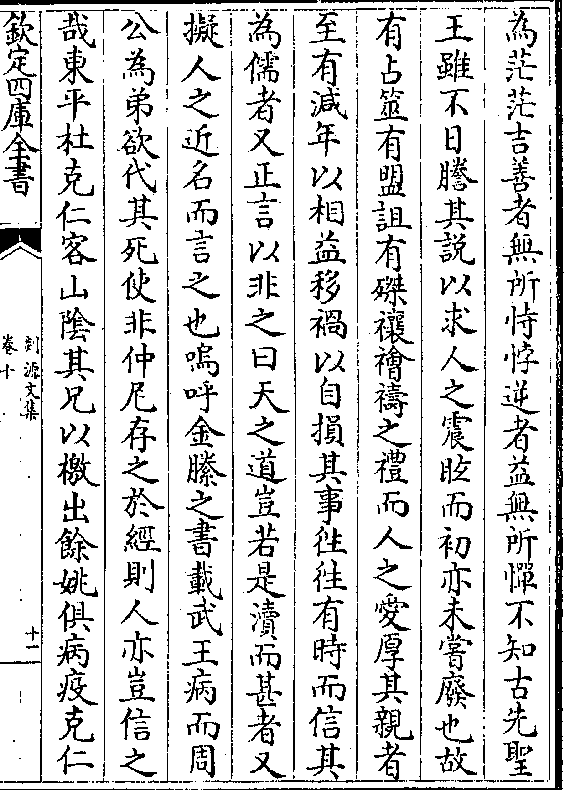 為茫茫吉善者無所恃悖逆者益無所憚不知古先聖
王雖不日騰其説以求人之震眩而初亦未嘗廢也故
有占筮有盟詛有磔禳禬禱之禮而人之愛厚其親者
至有減年以相益移禍以自損其事徃徃有時而信其
為儒者又正言以非之曰天之道豈若是瀆而甚者又
擬人之近名而言之也嗚呼金縢之書載武王病而周
公為弟欲代其死使非仲尼存之於經則人亦豈信之
哉東平杜克仁客山隂其兄以檄出餘姚俱病疫克仁
欽定四庫全書
剡源文集
卷十
十一